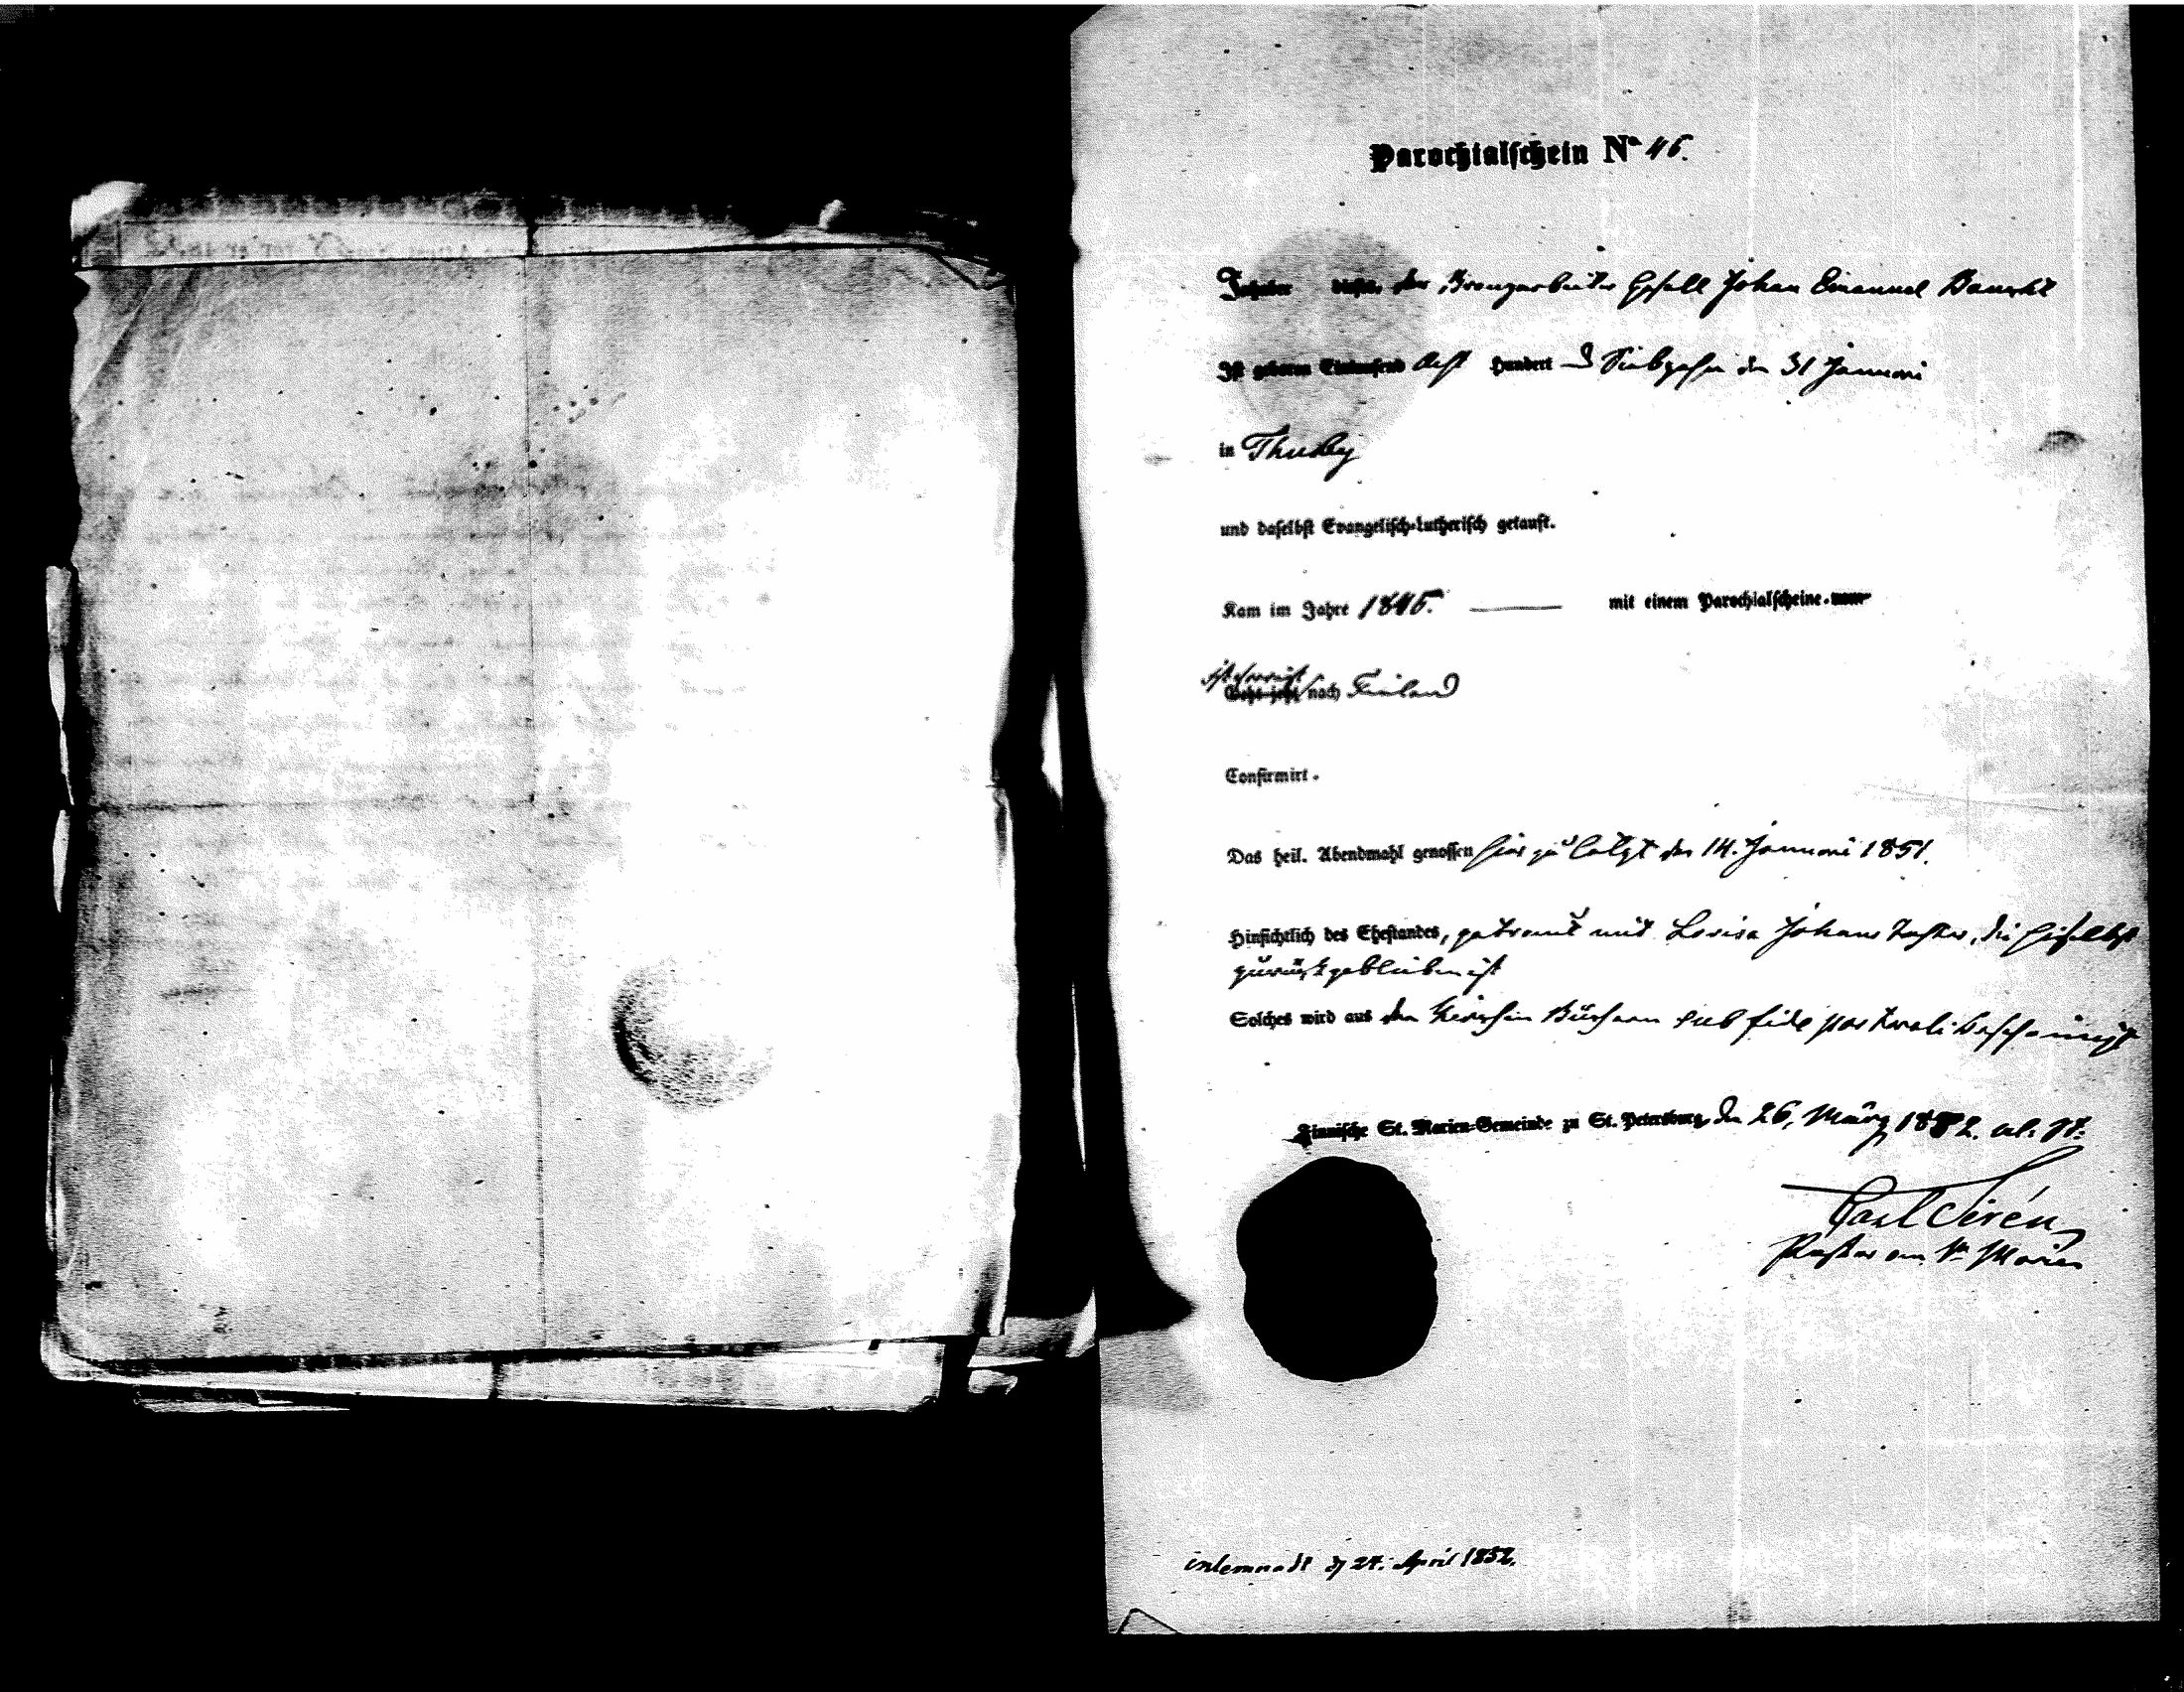 Parochialschein No 46.
Inhaber dieses, der Bronzarbeiter Gesell Johan Emanuel
Ist geboren Eintausend Acht Hundert d Siebzehn den 31 Januari
in Thusby
und daselbst Evangelisch-Lutherisch getauft.
Kam im Jahre 1846. — mit einem Parochialscheine von
ist verreist
Geht jetzt nach Finland
Confirmirt.
Das heil. Abendmahl genossen hier zuletzt den 14. Januari 1851.
Hinsichtlich des Ehestandes, getraut mit Lovisa Johans Tochter, die hieselbst
zurückgeblieben ist
Solches wird aus den Kirchen Büchern sub fide pastorali bescheinigt
Finnische St. Marien-Gemeinde zu St. Petersburg, den 26. März 1852. al. St.
Carl Sirén
Pastor an St Marien
inlemnadt d 27. April 1852.